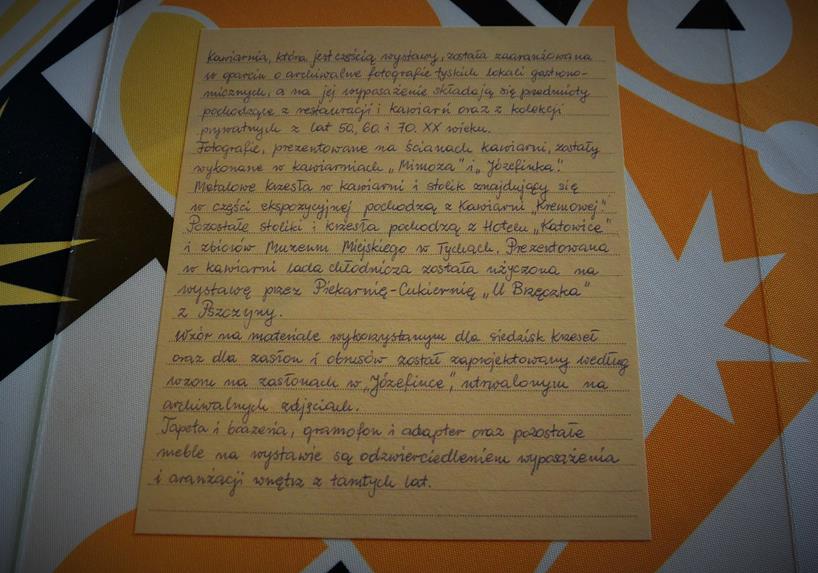 Kawiarnia, która jest częścią wystawy, została zaaranżowana
w oparciu o archiwalne fotografie tyskich lokali gastrono-
micznych, a na jej wyposażenie składają się przedmioty
pochodzące z restauracji i kawiarń oraz z kolekcji
prywatnych z lat 50, 60. i 70. XX wieku.
Fotografie, prezentowane na ścianach kawiarni, zostały
wykonane w kawiarniach „Mimoza” i „Józefinka”.
Metalowe krzesła w kawiarni i stolik znajdujący się
w części ekspozycyjnej pochodzą z Kawiarni „Kremowej”
Pozostałe stoliki i krzesła pochodzą z Hotelu „Katowice”
i zbiorów Muzeum Miejskiego w Tychach. Prezentowana
w kawiarni lada chłodnicza została użyczona na
wystawę przez Piekarnię-Cukiernię „U Brzęczka”
z Pszczyny.
Wzór na materiale wykorzystanym dla siedzisk krzeseł
oraz dla zasłon i obrusów został zaprojektowany według
wzoru na zasłonach w „Józefince”, utrwalonym na
archiwalnych zdjęciach.
Tapeta i boazeria, gramofon i adapter oraz pozostałe
meble na wystawie są odzwierciedleniem wyposażenia
i aranżacji wnętrz z tamtych lat.